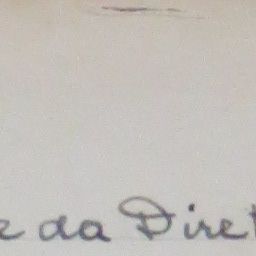 e da Diret